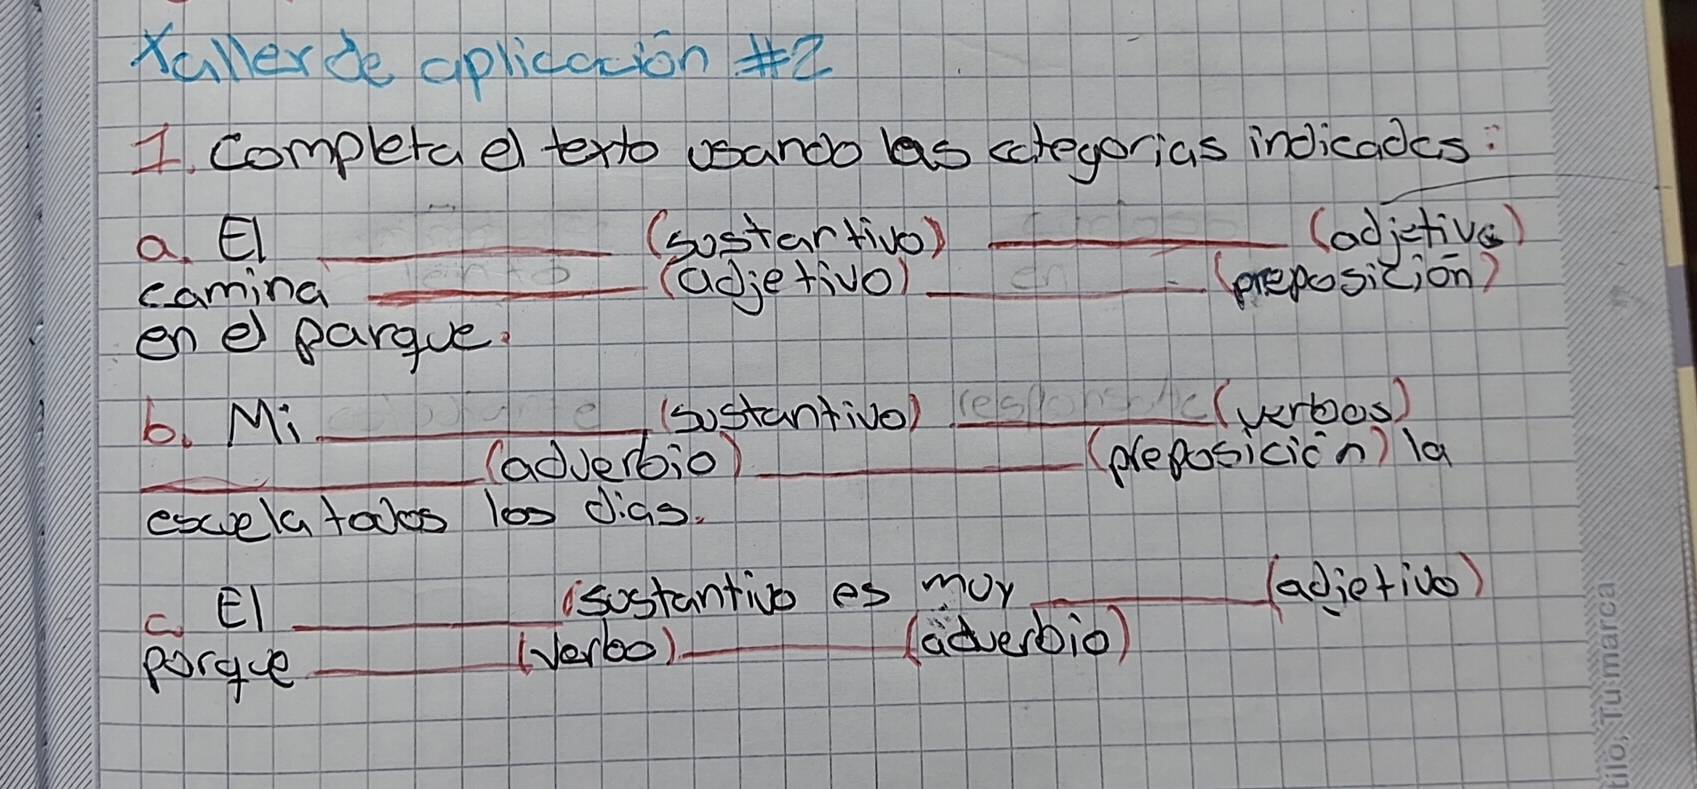 Taller de aplicación #2
1. Completa el texto usando las categorias indicadas:
a. El ________ (sustantivo) ________ (adjetivo)
camina ________ (adjetivo) en ________ (preposición)
en el parque.
b. Mi ________ (sustantivo) responsable (verbos)
________ (adverbio) ________ (preposición) la
escuela todos los dias.
c. El ________ (sustantivo es muy ________ (adjetivo)
porque ________ (verbo) ________ (adverbio)
tilo, Tu marca